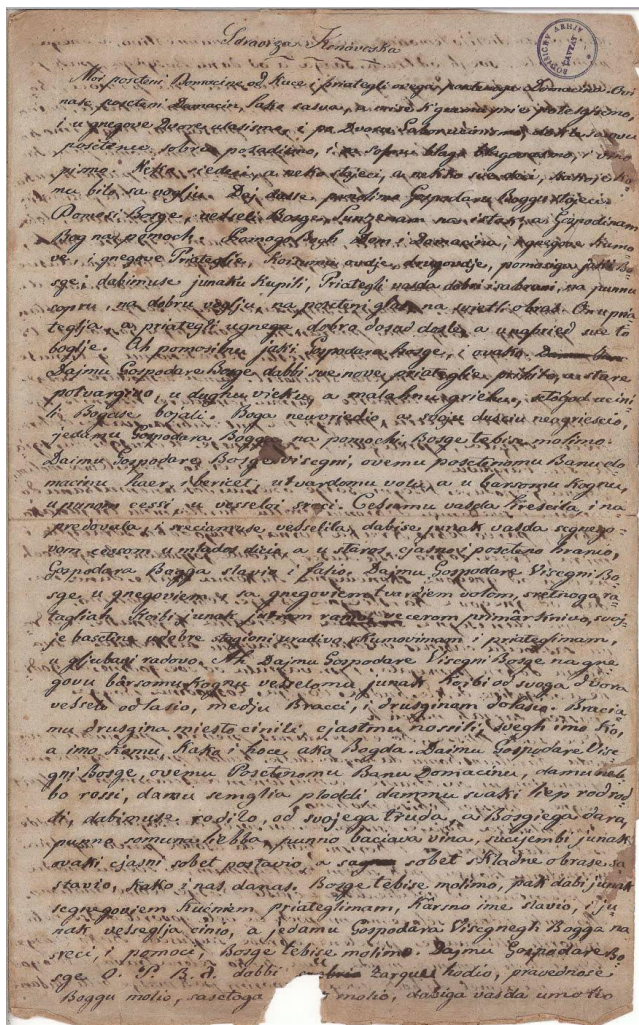 Sdraviza Konavoska
BOGISICEV ARHIV CAVTAT
Moi poscteni Domacine od Kuce i priategli ovega Domacina. Ovi
nasc poscteni Damacin, lake sasva, a mise k gnemu prie
i u gnegove Dvore ulasimo, i pa Dvoru
posctenu sobru posadismo, i sa sopru blaga blagovasmo, i vino
pismo. Neko siedeci, a neko stojeci, a nekiko
mu bilo sa voglju. Daj dasse, pomolimo Gospodaru Boggu stojeci.
Pomosi Bosge, vesseli Bosge, Sunzenam na istoku, a Gospodinam
Bog na pomock. Pomogo Bogh Dom i Domacina, i gnegove Kumo
ve, i gnegove Priateglie, Koisumu ovdje, drugovdje, pomosiga jaki Bo-
sge, i dabimuse junaku Kupili, Priategli vasda dobri isabrani, na punnu
sopru, na dobru voglju, na poscteni glas, na svietli obras. On u pria
teglja, a priategli u gnega dobro dosad dosle, a unapried sve to
boglje. Oh pomosimu jaki Gospodaru Bosge, i ovako.
Dajmu Gospodare Bosge dabbi sve nove priateglie a stare
potvargivo, u dughu vieku, a malahnu griehu,
li Boga se bojali. Boga neuvriedio, a svoju dusciu neogriescio,
jedamu Gospodara Bogga na pomocki, Bosge tebise molimo.
Daimu Gospodare Bosge visegni, ovemu posctenomu Banu do
macinu haer, i bericet, u tvardomu volu, a u barsomu kognu,
u punom cessi, u vesseloi sreci. Cessamu vasda Krescila, i na
predovala, i sreciamuse vesselila, dabise junak vasda segnego-
vom cessom u mlados dicio, a u staros cjasno i poscteno hranio,
Gospodara Bogga slavio i falio. Dajmu Gospodare Visegni Bo-
sge, u gnegoviem i sa gnegoviem tvardjem volom, sretnoga ra-
taglia. Koibi junak jutrom ranio, vecerom primarknivo, svoj
je bastine udobre stagioni uradivo, skumovimam i priateglimam,
u gljubavi radovo. Ah Dajmu Gospodare Visegni Bosge na gne
govu barsomu kognu vesselomu junak. Koibi od svoga dvora
vesselo odlasio, medju Bracci, i drusginam dolasio. Bracia
mu drusgina miesto cinili, cjastmu nossili, svegh imo Ko,
a imo Kemu, Kako i hoce, ako Bogda. Daimu Gospodare Vise
gni Bosge, ovemu Posctenomu Banu Domacinu, damu neb
bo rossi, damu semglia ploddi, dammu svaki liep rod rod
di, dabimuse rodilo, od svojega truda, a Bosgiega dara,
punne somune hebba, punno baciava vina, sucijembi junak
svaki cjasni sobet postavio, a sobet skladne obrase sa
stavio, kako i nas danas. Bosge tebise molimo, pak dabi junak
segnegoviem Kucniem priateglimam, Karsno ime slavio, i ju
nak vesseglja cinio, a jedamu Gospodara Visegnegh Bogga na
sreci, i pomoci, Bosge tebise molimo. Dajmu Gospodare Bo-
sge O. S. B. D. dabbi zarque hodio, pravednose
Boggu molio, sasctoga molio, dabiga vasda umolio